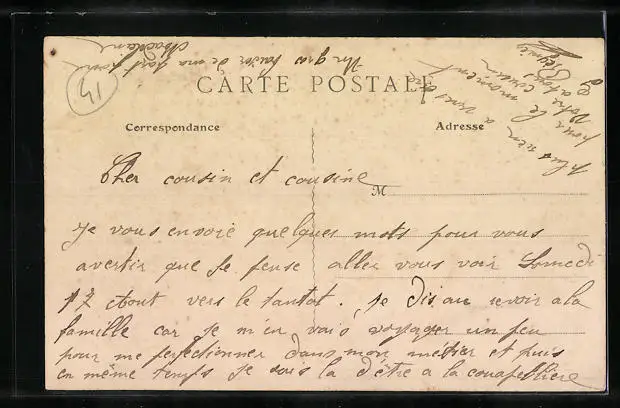 14
Un gros baiser de ma part pour
Madeleine
CARTE POSTALE
Correspondance
Adresse
plus rien a vous dire
pour le moment
Votre cousin
M
Cher cousin et cousine
Je vous envoie quelques mots pour vous
avertir que je pense aller vous voir Samedi
17 Aout vers le tantot. je dis au revoir a la
famille car je m'en vais voyager un peu
pour me perfectionner dans mon métier et puis
en même temps je suis la d'être a la